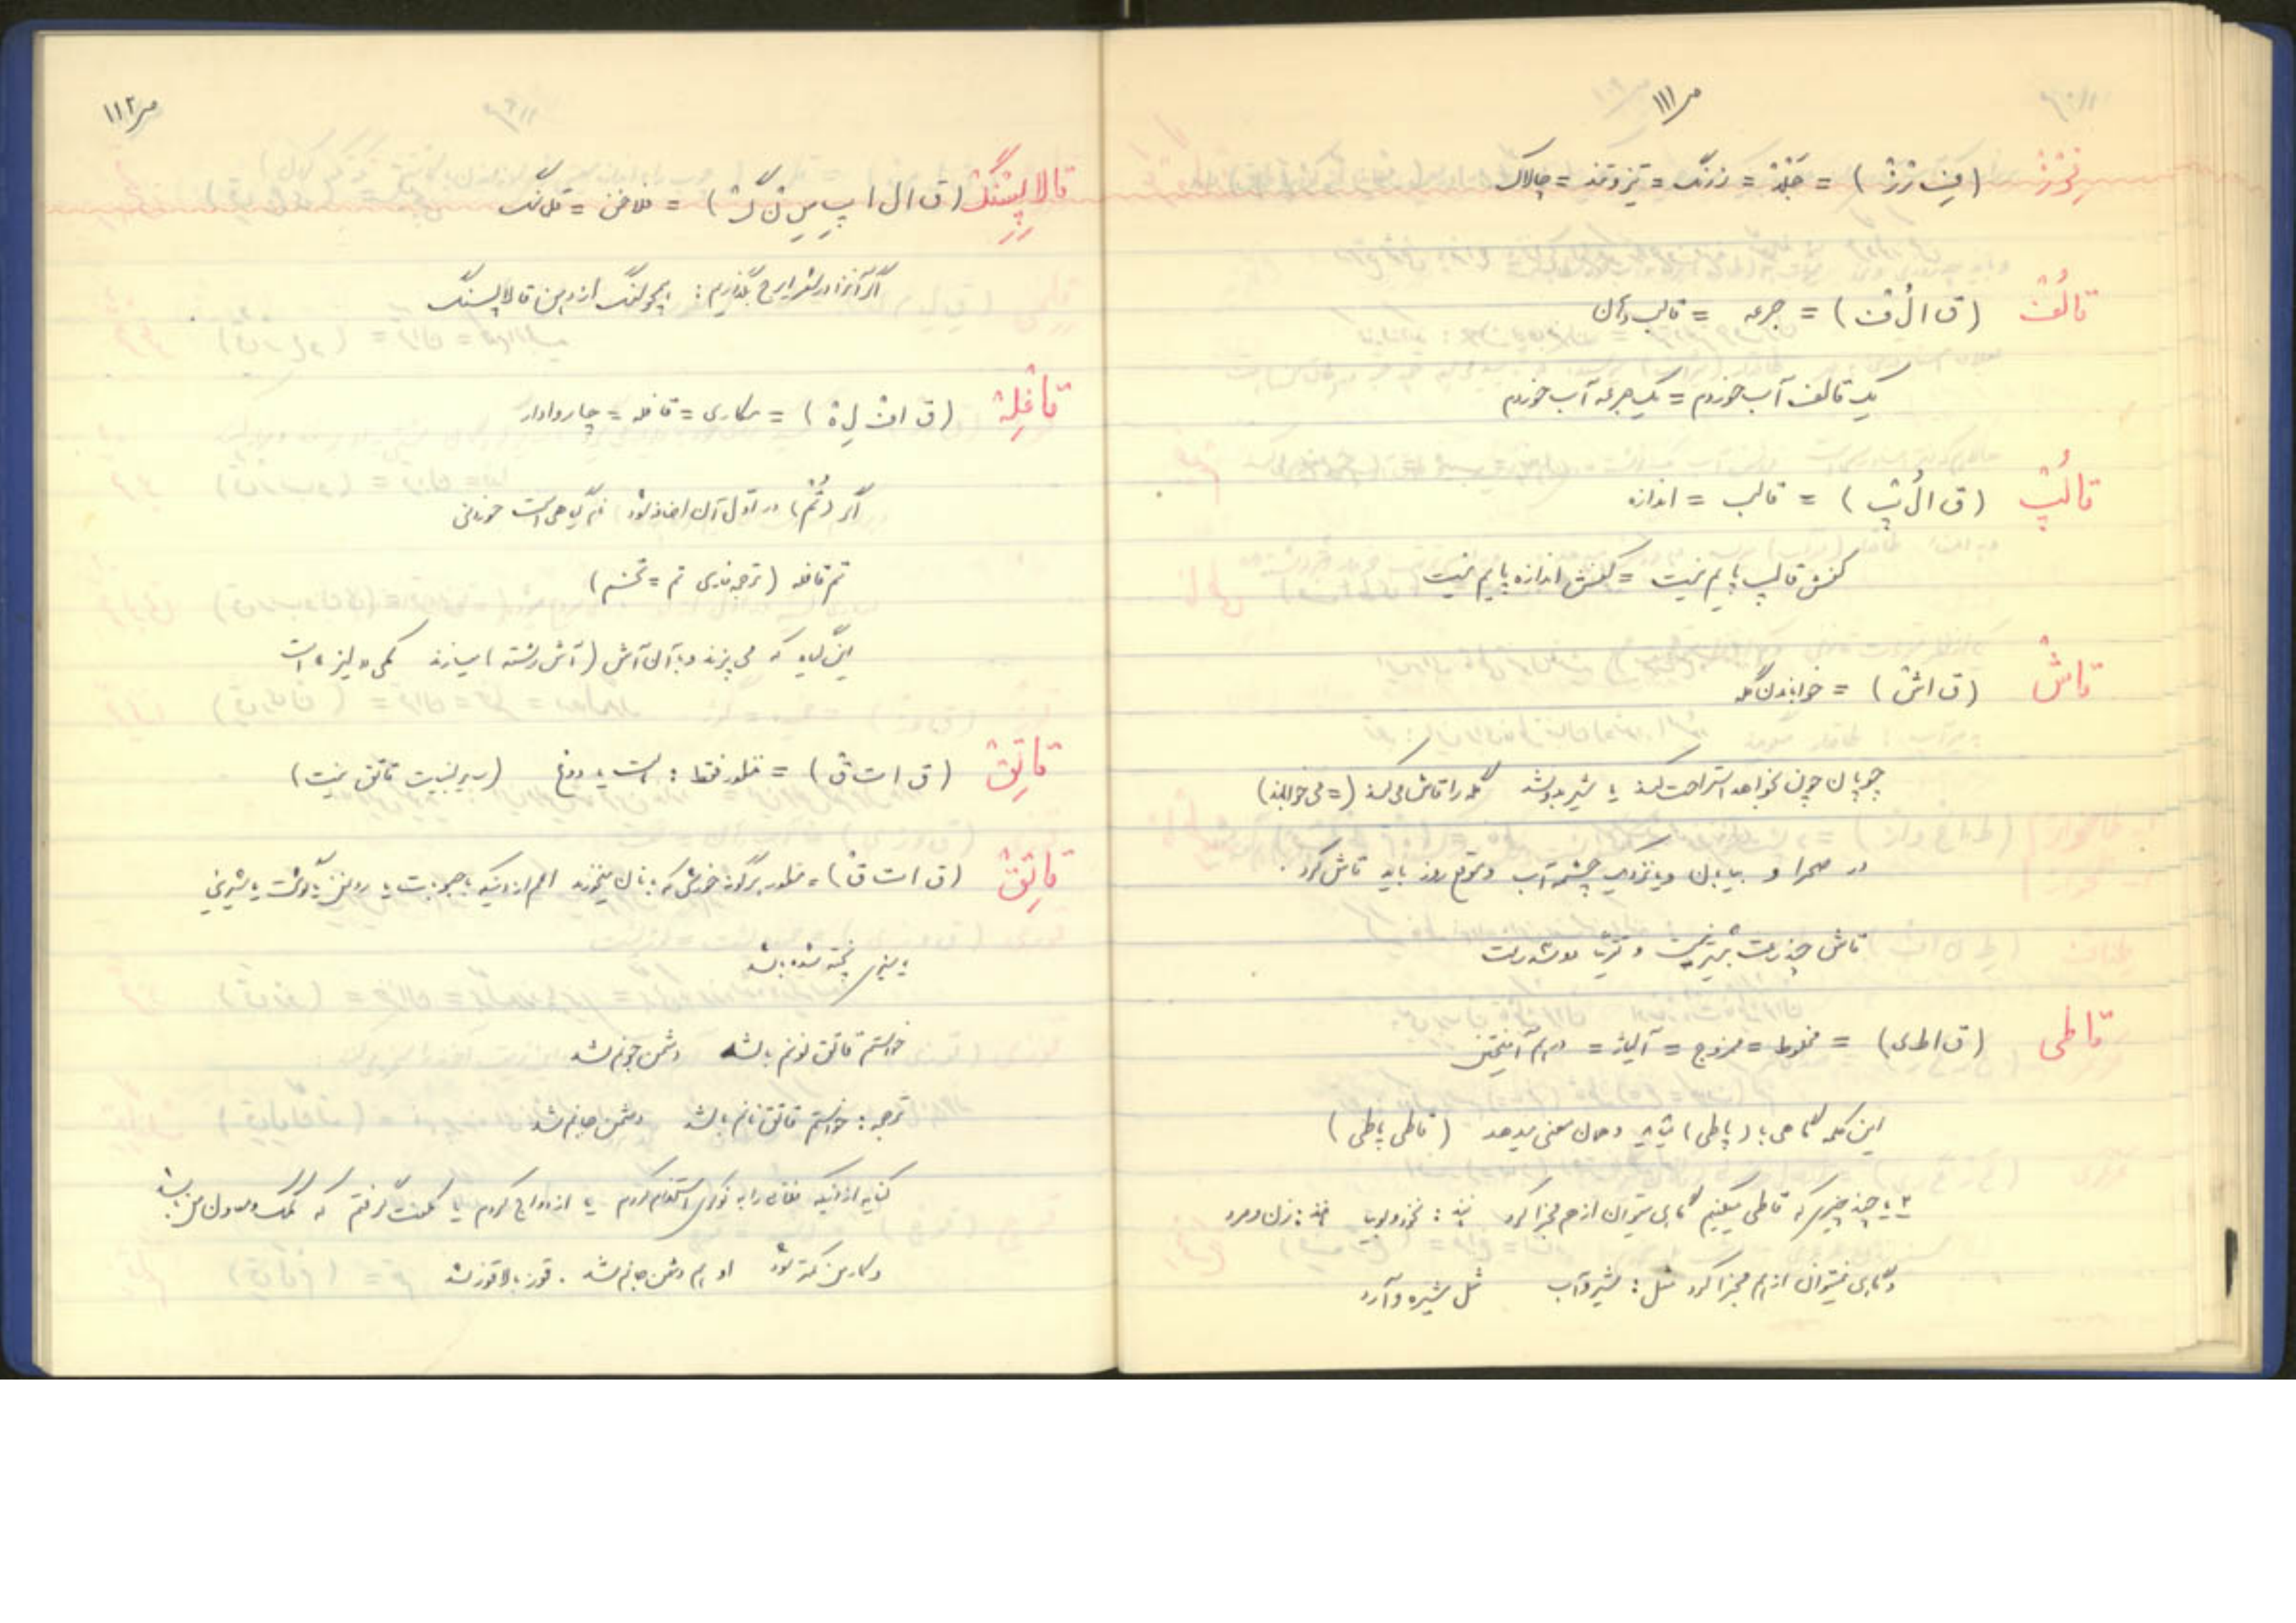 ص ۱۱۱
فِرْزْ (فِ رْ زْ) = جَلْدْ = زرنگ = تیز و تند = چالاک
قالُفْ (ق ا لُ فْ) = جرعه = قالب دهان
یک قالف آب خوردم = یک جرعه آب خوردم
قالُپْ (ق ا لُ پْ) = قالب = اندازه
کفش قالب پایم نیست = کفش اندازه پایم نیست
قاشْ (ق ا شْ) = خواباندن گله
چوپان چون بخواهد استراحت کند یا شیر بدوشد گله را قاش می کند (= می خواباند)
در صحرا و بیابان و یا نزدیک چشمه آب و موقع روز باید قاش کرد.
قاش چند ساعت بیشتر نیست و
قاطی (ق ا ط ی) = مخلوط = ممزوج = آلیاژ = درهم آمیختن
این کلمه گاهی با (پاطی) میاید و همان معنی میدهد (قاطی پاطی)
۲ یا چند چیز که قاطی میکنیم گاهی میتوان از هم مجزا کرد مانند: نخود و لوبیا مانند: زن و مرد
و گاهی نمیتوان از هم مجزا کرد مثل: شیر و آب مثل شیره و آرد
ص ۱۱۲
قالاپِسَنْگْ (ق ا ل ا پِ سَ نْ گْ) = فلاخن = قلاسنگ
اگر آنرا در شعر ایرج بگذاریم: همچو سنگ از دهن قالاپسنگ
قافْلِهْ (ق ا فْ لِ هْ) = مکاری = قافله = چاروادار
اگر (تُمْ) در اول آن اضافه شود نام گیاهی است خوردنی
تم قافله (ترجمه فارسی تم = تخم)
این گیاه که می پزند و با آن آش (آش رشته) میسازند کمی «لیز» است
قاتِقْ (ق ا ت قْ) = منظور فقط: ماست یا دوغ (سیر بیسیت قاتق نیست)
قاتِقْ (ق ا ت قْ) = منظور هرگونه خورشی که با نان میخورند اعم از اینکه با حبوبات یا روغن یا گوشت یا شیرینی
یا سبزی پخته شده باشد
خواستم قاتق نونم باشد دشمن جونم شد
ترجمه: خواستم قاتق نانم باشد دشمن جانم شد
کنایه از اینکه فلانی را به نوکری استخدام کردم یا ازدواج کردم یا کلفت گرفتم که کمک و معاون من باشد
و کار من کمتر شود او هم دشمن جانم شد. قوز بالا قوز شد